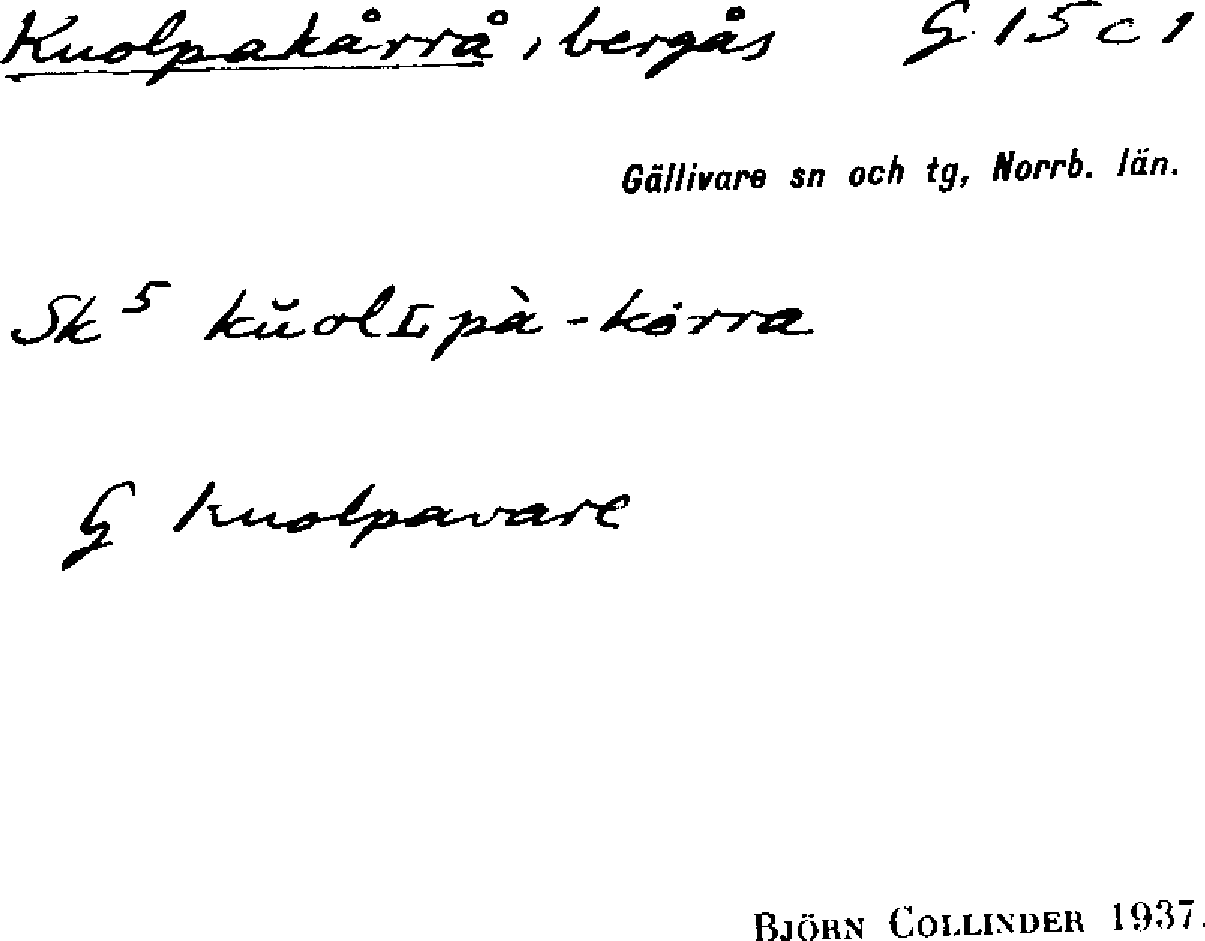 Kuolpakårrå, bergås G 15 c 1
Gällivare sn och tg, Norrb. län.
Sk⁵ kŭolʟpà-kȯrra
G Kuolpavare
BJÖRN COLLINDER 1937.